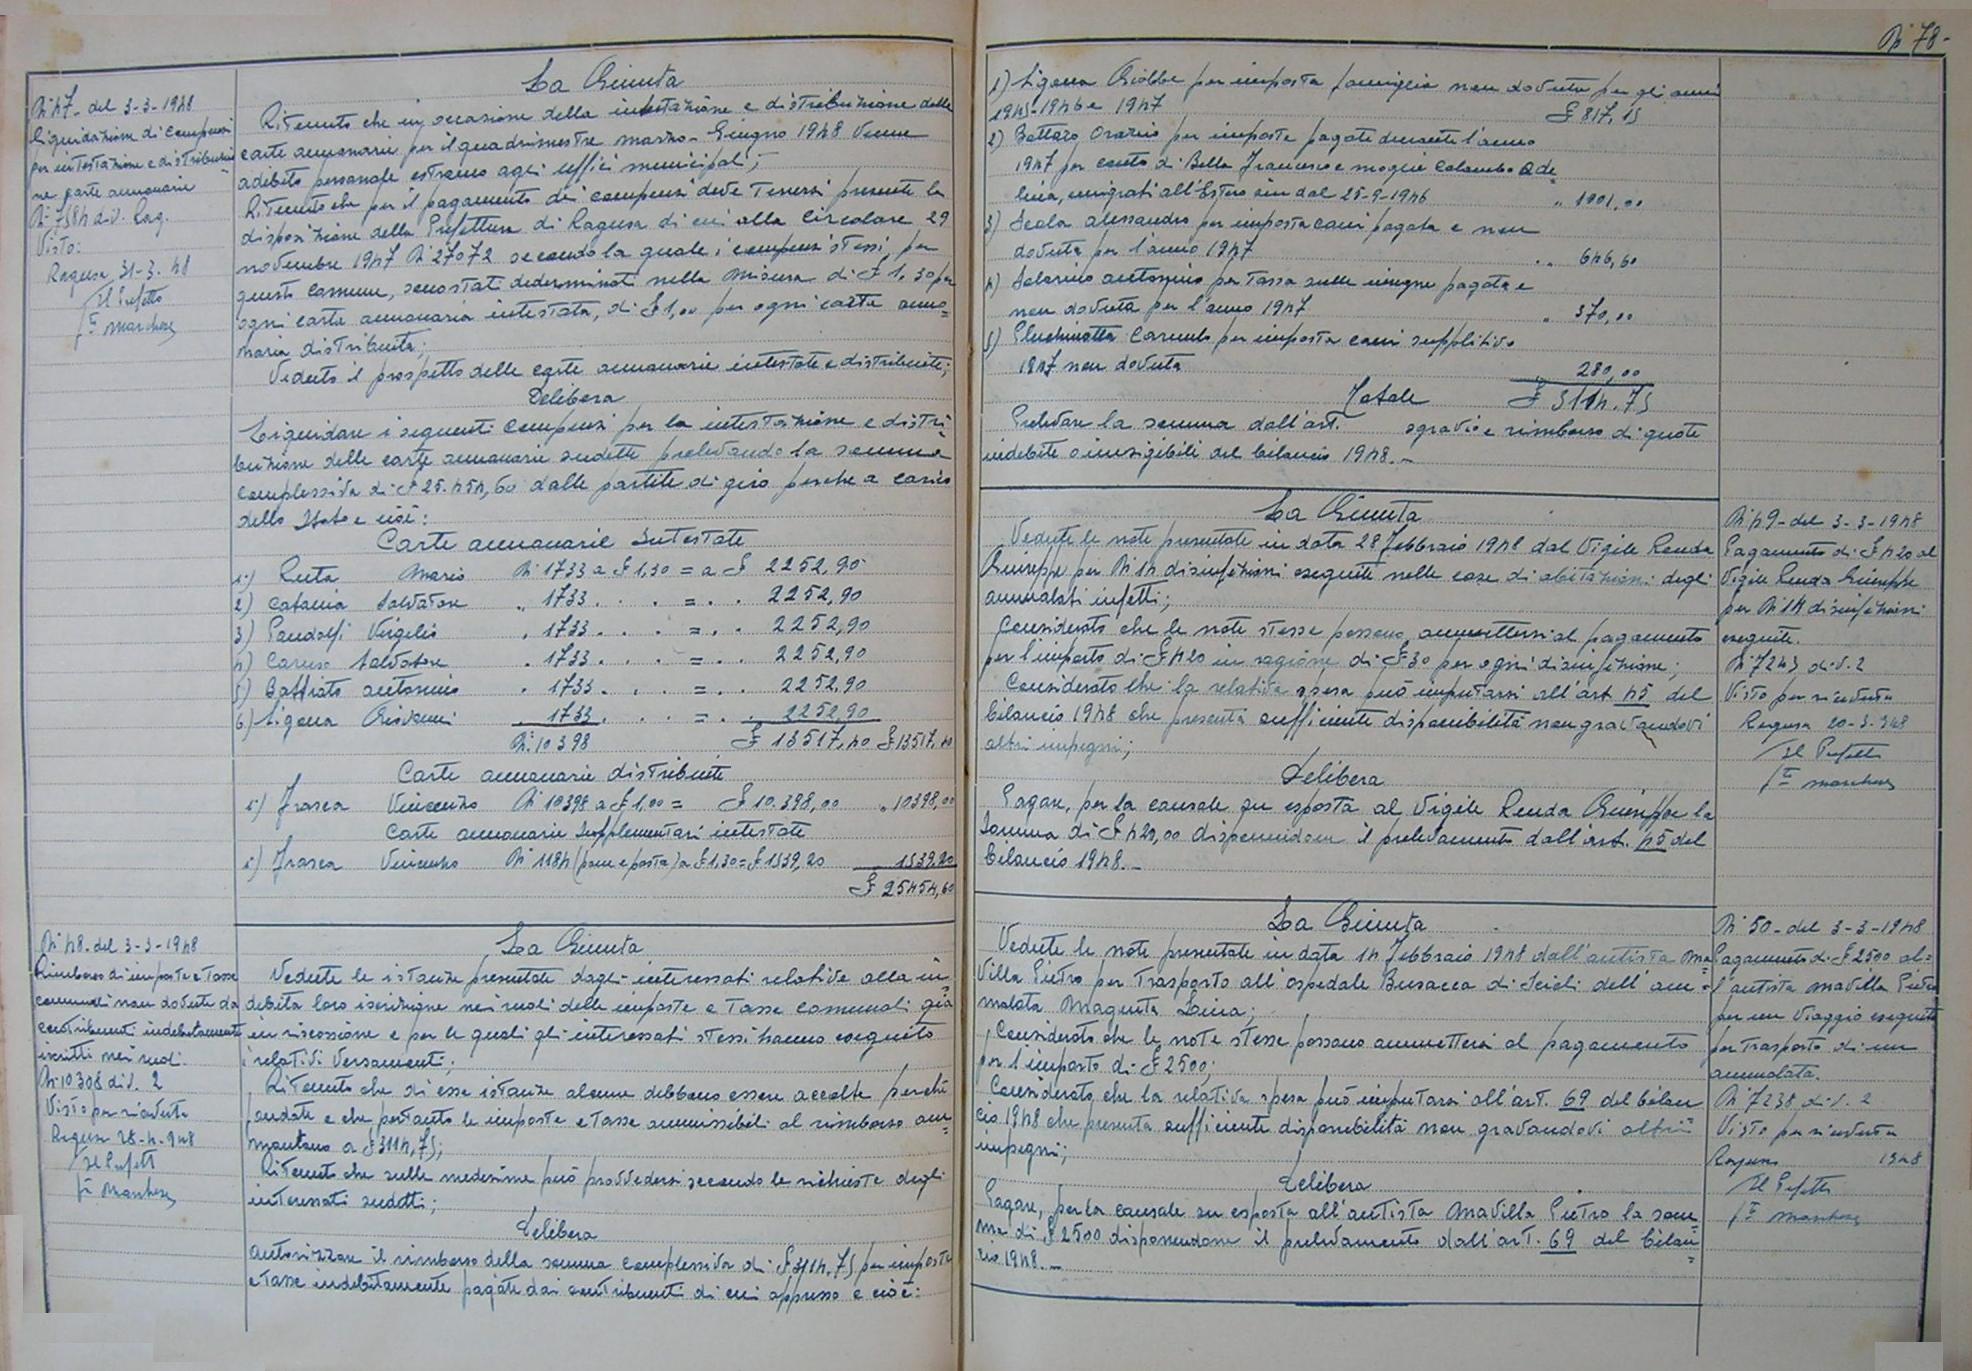 N° 47- del 3-3-1948
Liquidazione di compensi
per intestazione e distribuzio
ne carte annonarie
N° 7584 div. Rag.
Visto:
Ragusa, 31-3-48
Il Prefetto
Fto Marchese
La Giunta
Ritenuto che in occasione della intestazione e distribuzione delle
carte annonarie per il quadrimestre marzo-Giugno 1948 venne
adibito personale estraneo agli uffici municipali;
Ritenuto che per il pagamento dei compensi deve tenersi presente la
disposizione della Prefettura di Ragusa di cui alla circolare 29
novembre 1947 N° 27072 secondo la quale i compensi stessi, per
questo comune, sono stati dederminati nella misura di £ 1,30 per
ogni carta annonaria intestata, di £ 1,00 per ogni carta anno=
naria distribuita;
Veduto il prospetto delle carte annonarie intestate e distribuite;
Delibera
Liquidare i seguenti compensi per la intestazione e distri=
buzione delle carte annonarie sudette prelevando la somma
complessiva di £ 25.454,60 dalle partite di giro perchè a carico
dello Stato e cioè:
Carte annonarie Intestate
1°) Ruta Mario N° 1733 a £ 1,30 = a £ 2252,90
2) Catania Salvatore " 1733 . . . = . . 2252,90
3) Pandolfi Virgilio " 1733 . . . = . . 2252,90
4) Caruso Salvatore . 1733 . . . = . . 2252,90
5) Battiato Antonino . 1733 . . . = . . 2252,90
6) Ligama Giovanni . 1733 . . . = . . 2252,90
N° 10398 £ 13517,40 £ 13517,40
Carte annonarie distribuite
1°) Frasca Vincenzo N° 10398 a £ 1,00 = £ 10.398,00 " 10398,00
Carte annonarie supplementari intestate
1°) Frasca Vincenzo N° 1184 (pane e pasta) a £ 1,30 = £ 1539,20 1539,20
£ 25454,60
N° 48- del 3-3-1948
Rimborso di imposte e tasse
comunali non dovute da
contribuenti indebitamente
iscritti nei ruoli.
N° 10308 div. 2
Visto per ricevuta
Ragusa 28-4-948
Il Prefetto
Fto Marchese
La Giunta
Vedute le istanze presentate dagli interessati relative alla in=
debita loro iscrizione nei ruoli delle imposte e tasse comunali già
in riscossione e per le quali gli interessati stessi hanno eseguito
i relativi versamenti;
Ritenuto che di esse istanze alcune debbano essere accolte perchè
fondate e che pertanto le imposte e tasse ammissibili al rimborso am=
montano a £ 3114,75;
Ritenuto che sulle medesime può provvedersi secondo le richieste degli
interessati sudetti;
Delibera
Autorizzare il rimborso della somma complessiva di £ 3114,75 per imposte
e tasse indebitamente pagate dai contribuenti di cui appresso e cioè:
N° 78-
1) Ligama Giobbe per imposta famiglia non dovuta per gli anni
1945-1946 e 1947 £ 817,15
2) Bottaro Orazio per imposte pagate durante l'anno
1947 per conto di Bella Francesco e moglie Colombo Ade
lina, emigrati all'Estero sin dal 25-9-1946 " 1001,00
3) Scala Alessandro per imposta cani pagata e non
dovuta per l'anno 1947 " 646,60
4) Salerino Antonino per tassa sulle insegne pagata e
non dovuta per l'anno 1947 " 370,00
5) Carmelo per imposta cani suppletivo
1947 non dovuta 280,00
Totale £ 3114,75
Prelevare la somma dall'art. sgravi e rimborso di quote
indebite o inesigibili del bilancio 1948.-
La Giunta
Vedute le note presentate in data 28 Febbraio 1948 dal Vigile Renda
Giuseppe per N° 14 disinfezioni eseguite nelle case di abitazioni degli
ammalati infetti;
Considerato che le note stesse possono ammettersi al pagamento
per l'importo di £ 420 in ragione di £ 30 per ogni disinfezione;
Considerato che la relativa spesa può imputarsi all'art 45 del
bilancio 1948 che presenta sufficiente disponibilità non gravandovi
altri impegni;
Delibera
Pagare, per la causale su esposta al Vigile Renda Giuseppe la
somma di £ 420,00 disponendone il prelevamento dall'art. 45 del
bilancio 1948.-
N° 49- del 3-3-1948
Pagamento di £ 420 al
Vigile Renda Giuseppe
per N° 14 disinfezioni
eseguite.
N° 7243 div. 2
Visto per ricevuta
Ragusa 20-3-948
Il Prefetto
Fto Marchese
La Giunta
Vedute le note presentate in data 14 Febbraio 1948 dall'autista Ma=
villa Pietro per trasporto all'ospedale Busacca di Scicli dell'am=
malata Magenta Livia;
Considerato che le note stesse possano ammettersi al pagamento
per l'importo di £ 2500;
Considerato che la relativa spesa può imputarsi all'art. 69 del bilan
cio 1948 che presenta sufficiente disponibilità non gravandovi altri
impegni;
Delibera
Pagare, per la causale su esposta all'autista Mavilla Pietro la som=
ma di £ 2500 disponendone il prelevamento dall'art. 69 del bilan=
cio 1948.-
N° 50- del 3-3-1948
Pagamento di £ 2500 al=
l'autista Mavilla Pietro
per un viaggio eseguito
per trasporto di un
ammalata.
N° 7238 div. 2
Visto per ricevuta
Ragusa 1948
Il Prefetto
Fto Marchese